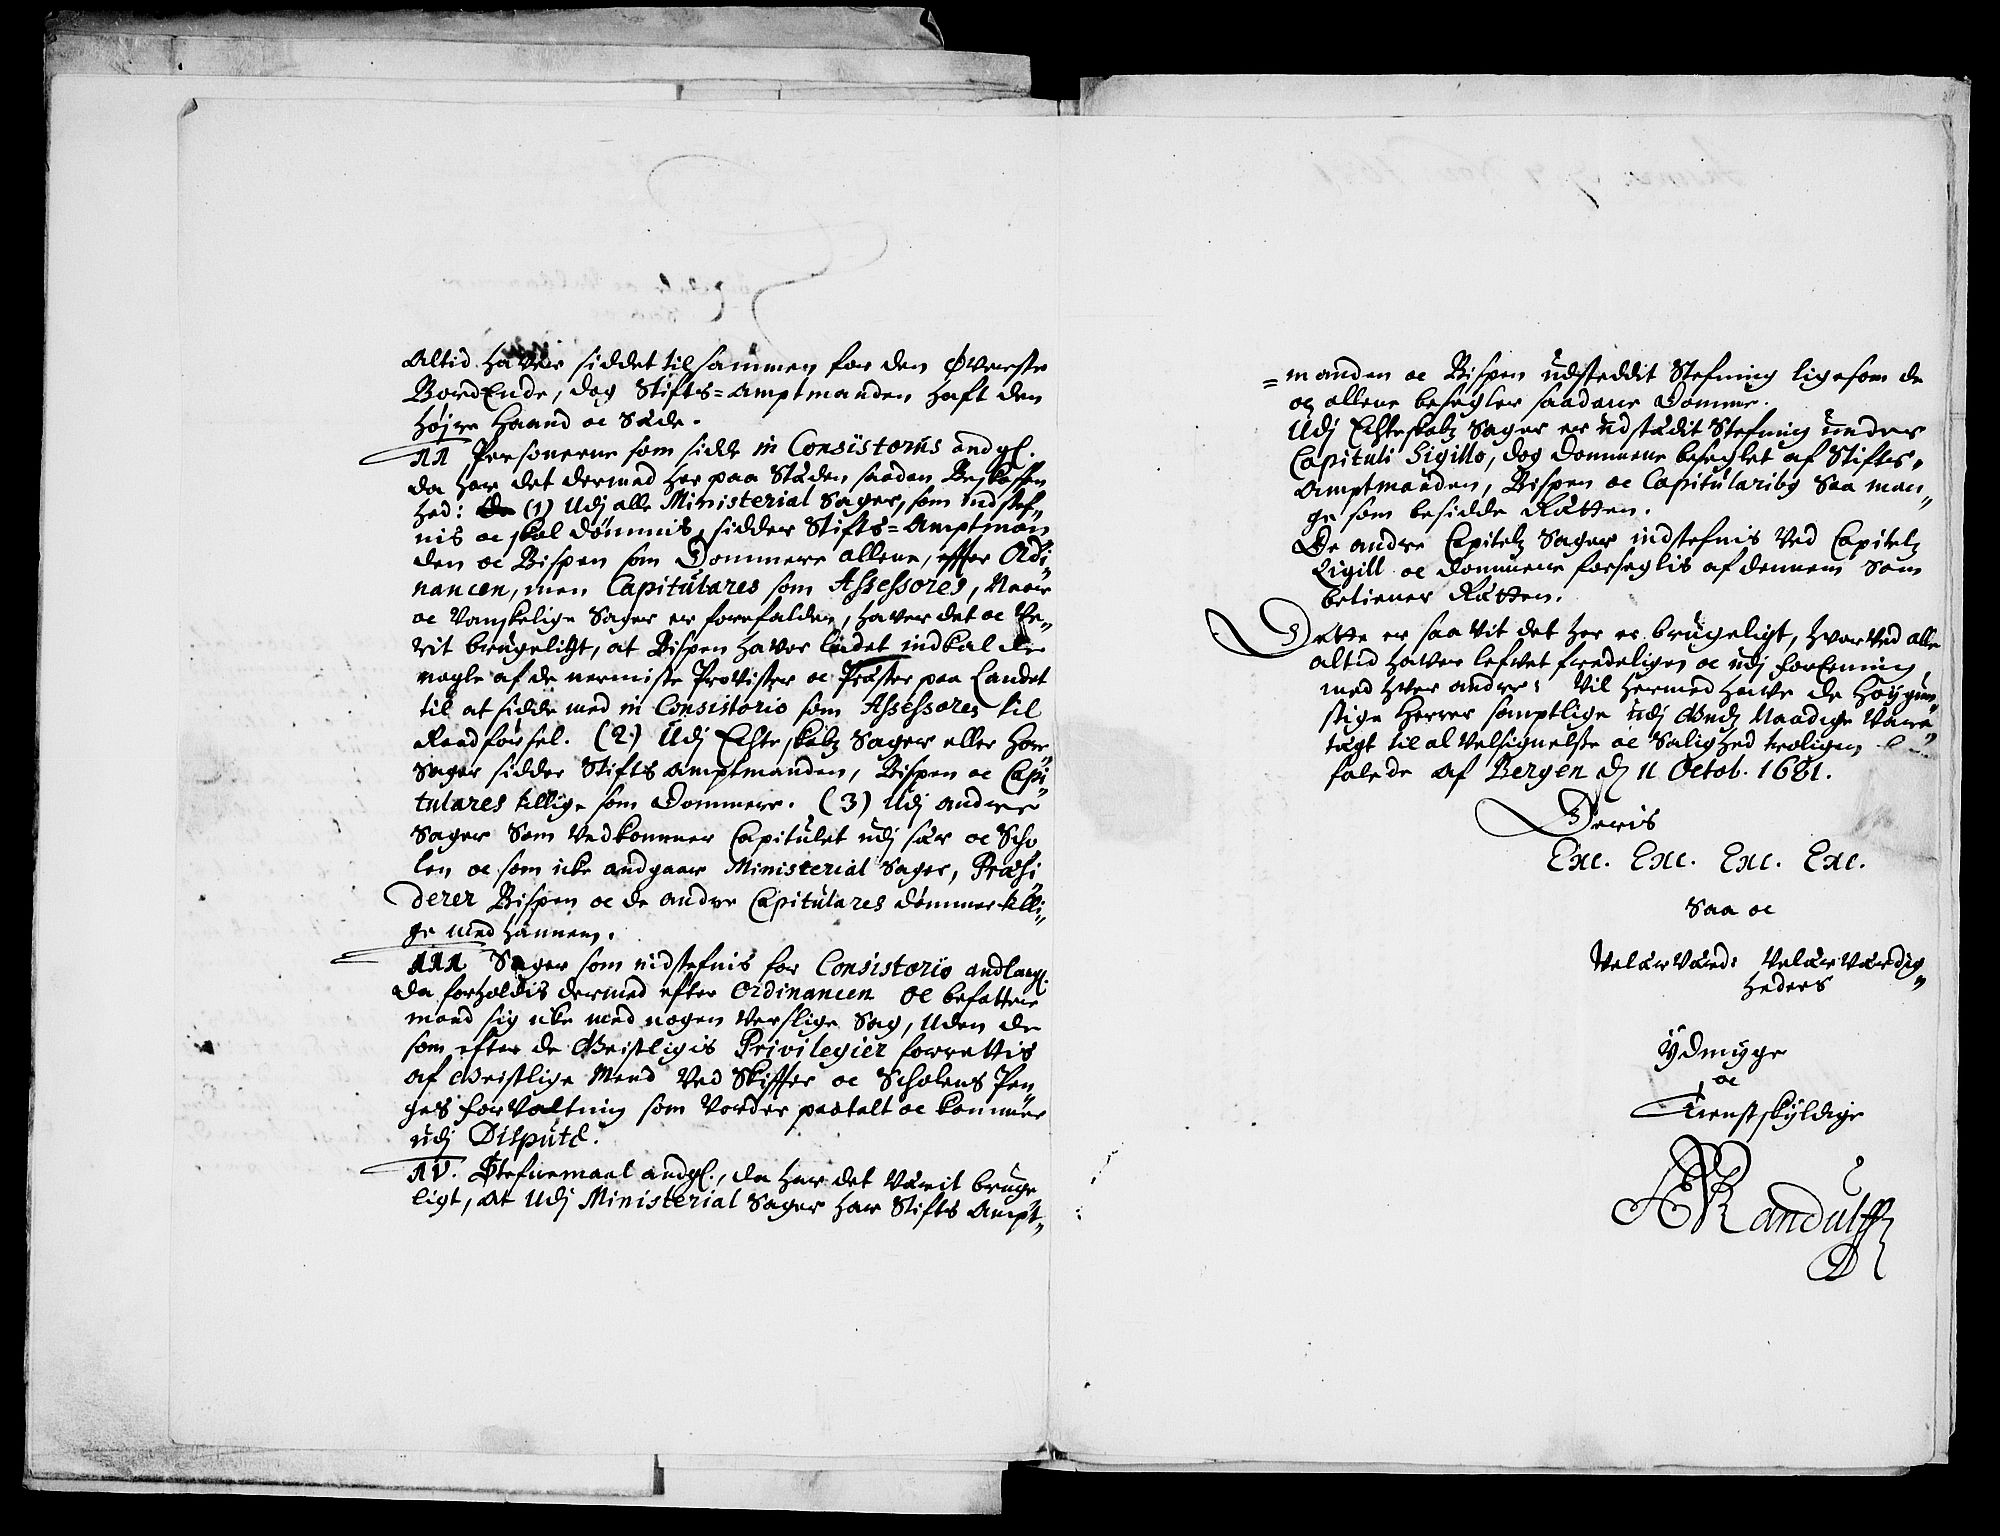 altid hafver siddet tilsammen for den Øverste
BordEnde, dog Stifts=Amptmanden haft den
højre Haand oc Sæde.
II Personerne som sidde in Consistoriis andgl.
da har det dermed her paa Stæden saadan Beskaffen
hed: (1) Udj alle Ministerial Sager, som indstef„
nis oc skal dømmis, sidder Stifts=Amptman
den oc Bispen som Dommere allene, effter Ordi„
nancen, men Capitulares som Assessores, Naar
oc Vanskelige Sager er forefalden, haver det oc Ve„
rit brugeligt, at Bispen haver ladet indkalde
nogle af de nermiste Provister oc Præster paa Landet
til at sidde med in Consistorio som Assessores til
Raadførsel. (2) Udj Echteskabz Sager eller Hor„
Sager sidder Stifts Amptmanden, Bispen oc Capi„
tulares tillige som Dommere. (3) Udj andre
Sager som vedkommer Capitulet udj sær oc Scho
len oc som icke andgaar Ministerial Sager, Præsi„
derer Bispen oc de andre Capitulares dømmer tilli„
ge med hannem.
III Sager som indstefnis for Consistorio andlang.
da forholdis dermed efter Ordinancen oc befatter
mand sig icke med nogen Verslige Sag, Uden de
som efter de Geistligis Privilegier forrettis
af Geistlige Mend Ved Skiffter oc Scholens Pen„
ges forvaltning som Vorder paatalt oc kommer
udj Dispute.
IV. Stefnemaal andgl., da har det Værit bruge
ligt, at Udj Ministerial Sager har Stifts Ampt„
=manden oc Bispen udsteddit Stefning ligesom de
og allene besegler saadane Domme.
Udj Echteskabz Sager er udstædit Stefning under
Capituli Sigillo, dog Dommene beseglet af Stifts„
Amptmanden, Bispen oc Capitularibus saa man„
ge som besidde Rætten.
De andre Capitels Sager indstefnis Ved Capitels
Sigill oc Dommene forseglis af dennem som
betiener Rætten.
Dette er saavit det her er brugeligt, hvorved alle
altid hafver lefvet fredeligen oc udj forEening
med hver andre: Vil hermed have de Høygun„
stige Herrer samptlige udj Gudz Naadige Vare„
tægt til al Velsignelse oc Salighed troligen
falede af Bergen d 11 Octob. 1681.
Deris
Exc. Exc. Exc. Exc.
Saa oc
Velærværd: Velærværdig„
heders
Ydmyge
oc
Tienstskyldige
Randulff